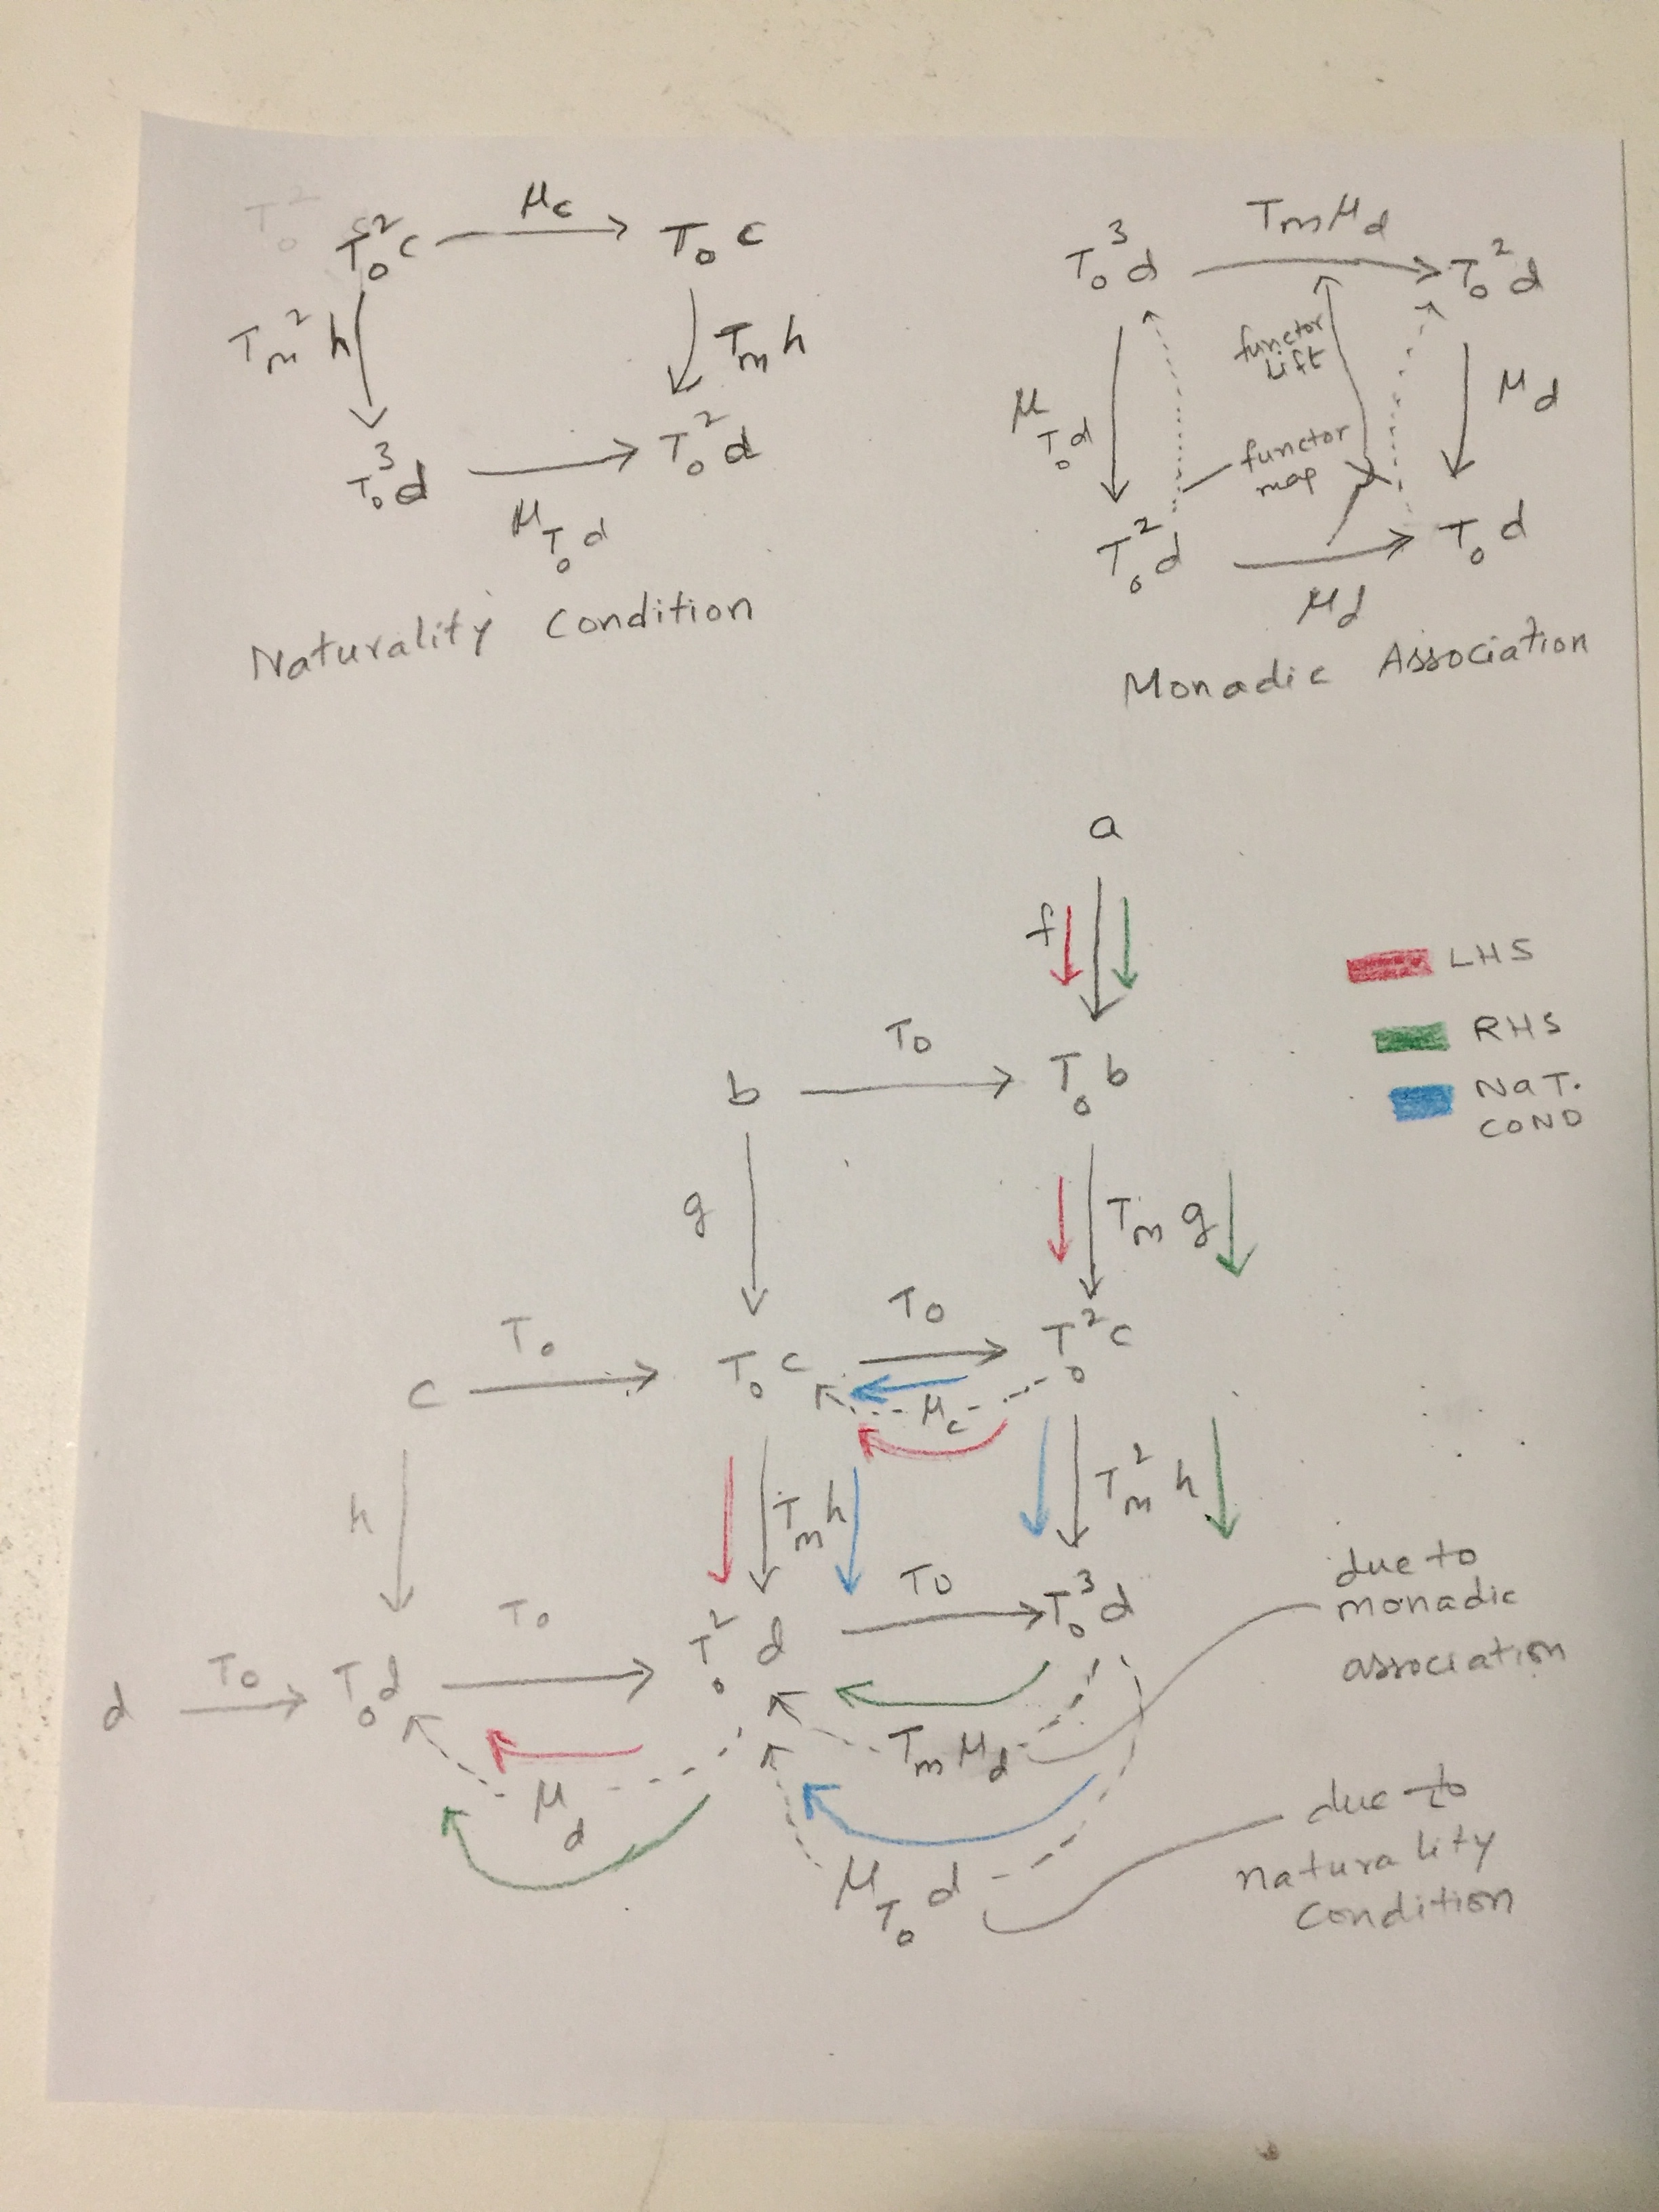 μ_c
T_o^2 c T_o c
T_m^2 h T_m h
T_o^3 d T_o^2 d
μ_{T_o d}
Naturality Condition
T_m μ_d
T_o^3 d T_o^2 d
functor
lift
μ_{T_o d} μ_d
functor
map
T_o^2 d T_o d
μ_d
Monadic Association
a
f
LHS
RHS
NAT.
COND
T_o
b T_o b
g T_m g
T_o T_o
c T_o c T_o^2 c
μ_c
h T_m h T_m^2 h
T_o T_o T_o
d T_o d T_o^2 d T_o^3 d
due to
monadic
association
T_m μ_d
μ_d
μ_{T_o} d
due to
naturality
condition